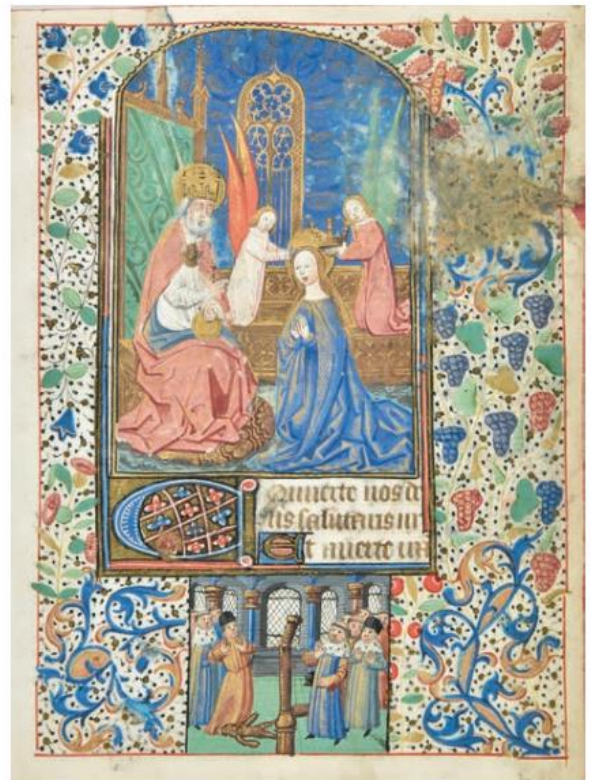 Conuerte nos de
us salutaris nr
Et auerte ira